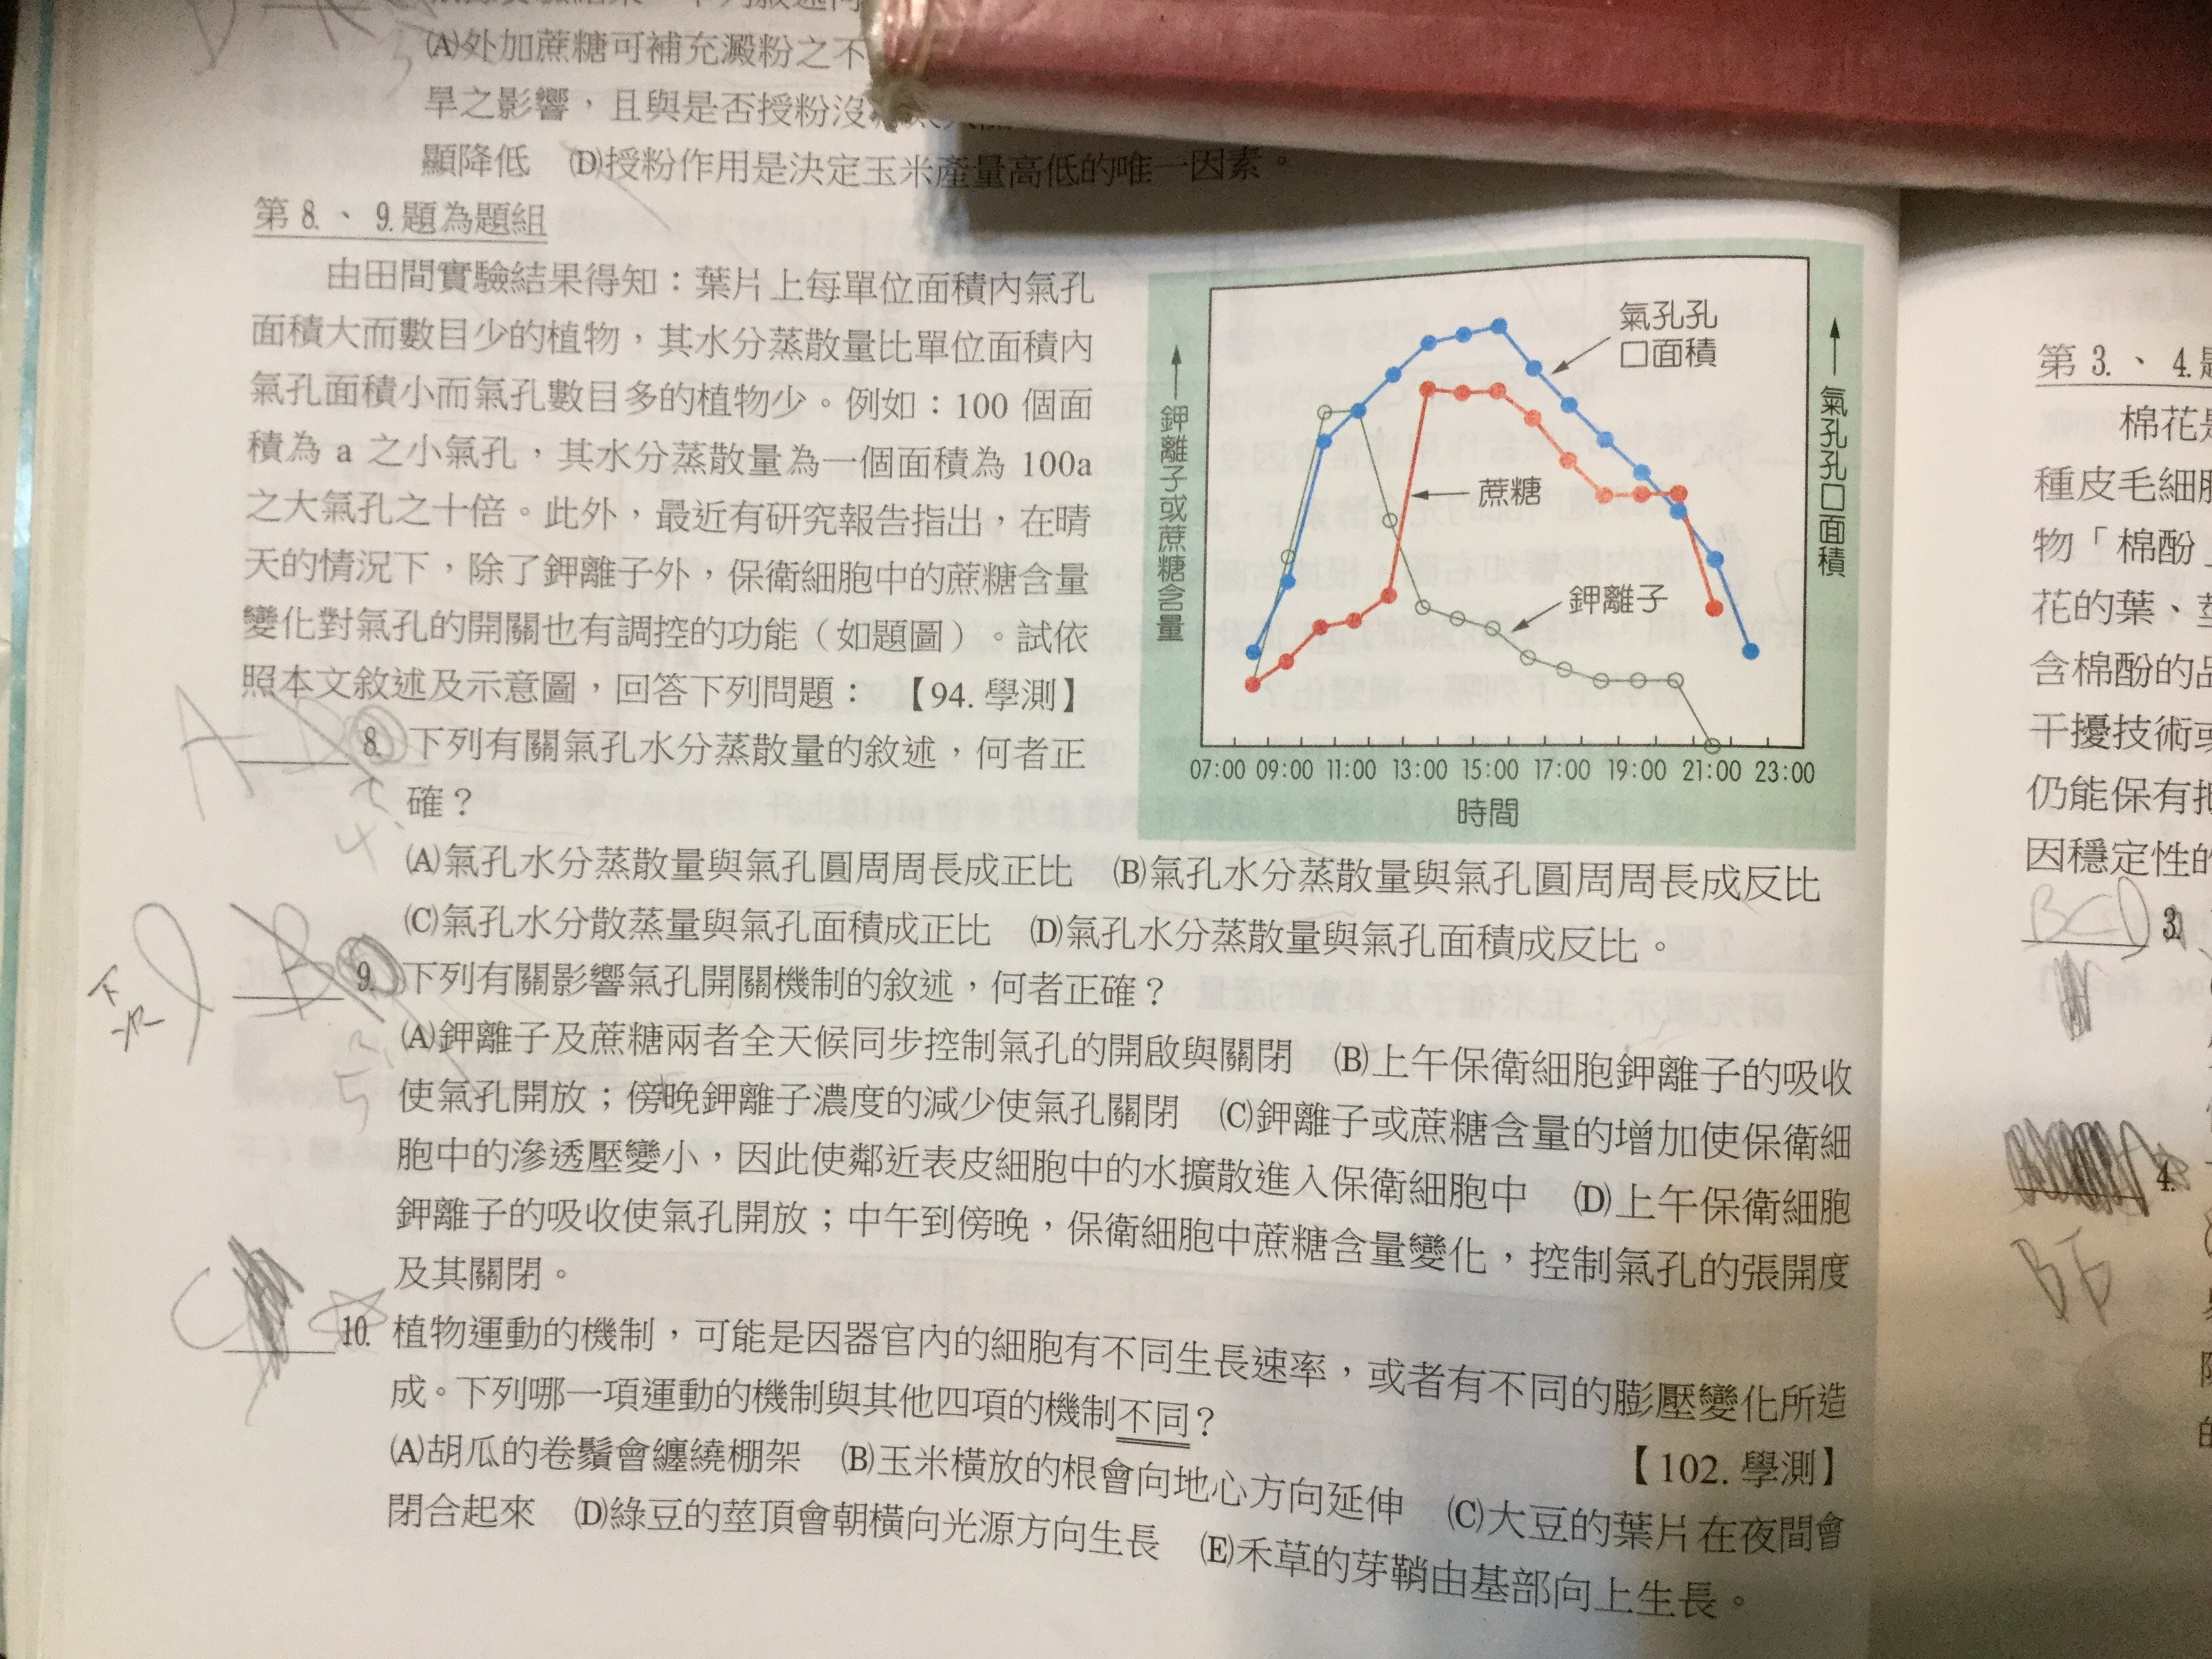 (A)外加蔗糖可補充澱粉之不
旱之影響，且與是否授粉沒
顯降低　(D)授粉作用是決定玉米產量高低的唯一因素。
第 8.、 9.題為題組
由田間實驗結果得知：葉片上每單位面積內氣孔
面積大而數目少的植物，其水分蒸散量比單位面積內
氣孔面積小而氣孔數目多的植物少。例如：100 個面
積為 a 之小氣孔，其水分蒸散量為一個面積為 100a
之大氣孔之十倍。此外，最近有研究報告指出，在晴
天的情況下，除了鉀離子外，保衛細胞中的蔗糖含量
變化對氣孔的開關也有調控的功能（如題圖）。試依
照本文敘述及示意圖，回答下列問題：　【94. 學測】
鉀離子或蔗糖含量
氣孔孔口面積
氣孔孔
口面積
蔗糖
鉀離子
07:00 09:00 11:00 13:00 15:00 17:00 19:00 21:00 23:00
時間
A 8. 下列有關氣孔水分蒸散量的敘述，何者正
確？
4.
(A)氣孔水分蒸散量與氣孔圓周周長成正比　(B)氣孔水分蒸散量與氣孔圓周周長成反比
(C)氣孔水分散蒸量與氣孔面積成正比　(D)氣孔水分蒸散量與氣孔面積成反比。
B 9. 下列有關影響氣孔開關機制的敘述，何者正確？
(A)鉀離子及蔗糖兩者全天候同步控制氣孔的開啟與關閉　(B)上午保衛細胞鉀離子的吸收
使氣孔開放；傍晚鉀離子濃度的減少使氣孔關閉　(C)鉀離子或蔗糖含量的增加使保衛細
胞中的滲透壓變小，因此使鄰近表皮細胞中的水擴散進入保衛細胞中　(D)上午保衛細胞
鉀離子的吸收使氣孔開放；中午到傍晚，保衛細胞中蔗糖含量變化，控制氣孔的張開度
及其關閉。
C 10. 植物運動的機制，可能是因器官內的細胞有不同生長速率，或者有不同的膨壓變化所造
成。下列哪一項運動的機制與其他四項的機制不同？
【102. 學測】
(A)胡瓜的卷鬚會纏繞棚架　(B)玉米橫放的根會向地心方向延伸　(C)大豆的葉片在夜間會
閉合起來　(D)綠豆的莖頂會朝橫向光源方向生長　(E)禾草的芽鞘由基部向上生長。
第 3.、 4.題
棉花是
種皮毛細胞
物「棉酚」
花的葉、莖
含棉酚的品
干擾技術或
仍能保有抵
因穩定性的
BCD 3.
4.
BE